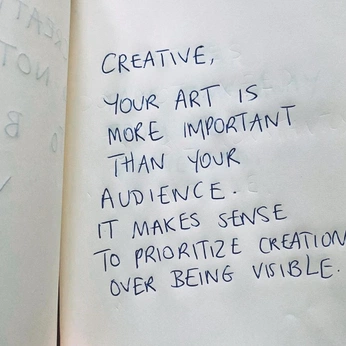 CREATIVE,
YOUR ART IS
MORE IMPORTANT
THAN YOUR
AUDIENCE.
IT MAKES SENSE
TO PRIORITIZE CREATION
OVER BEING VISIBLE.